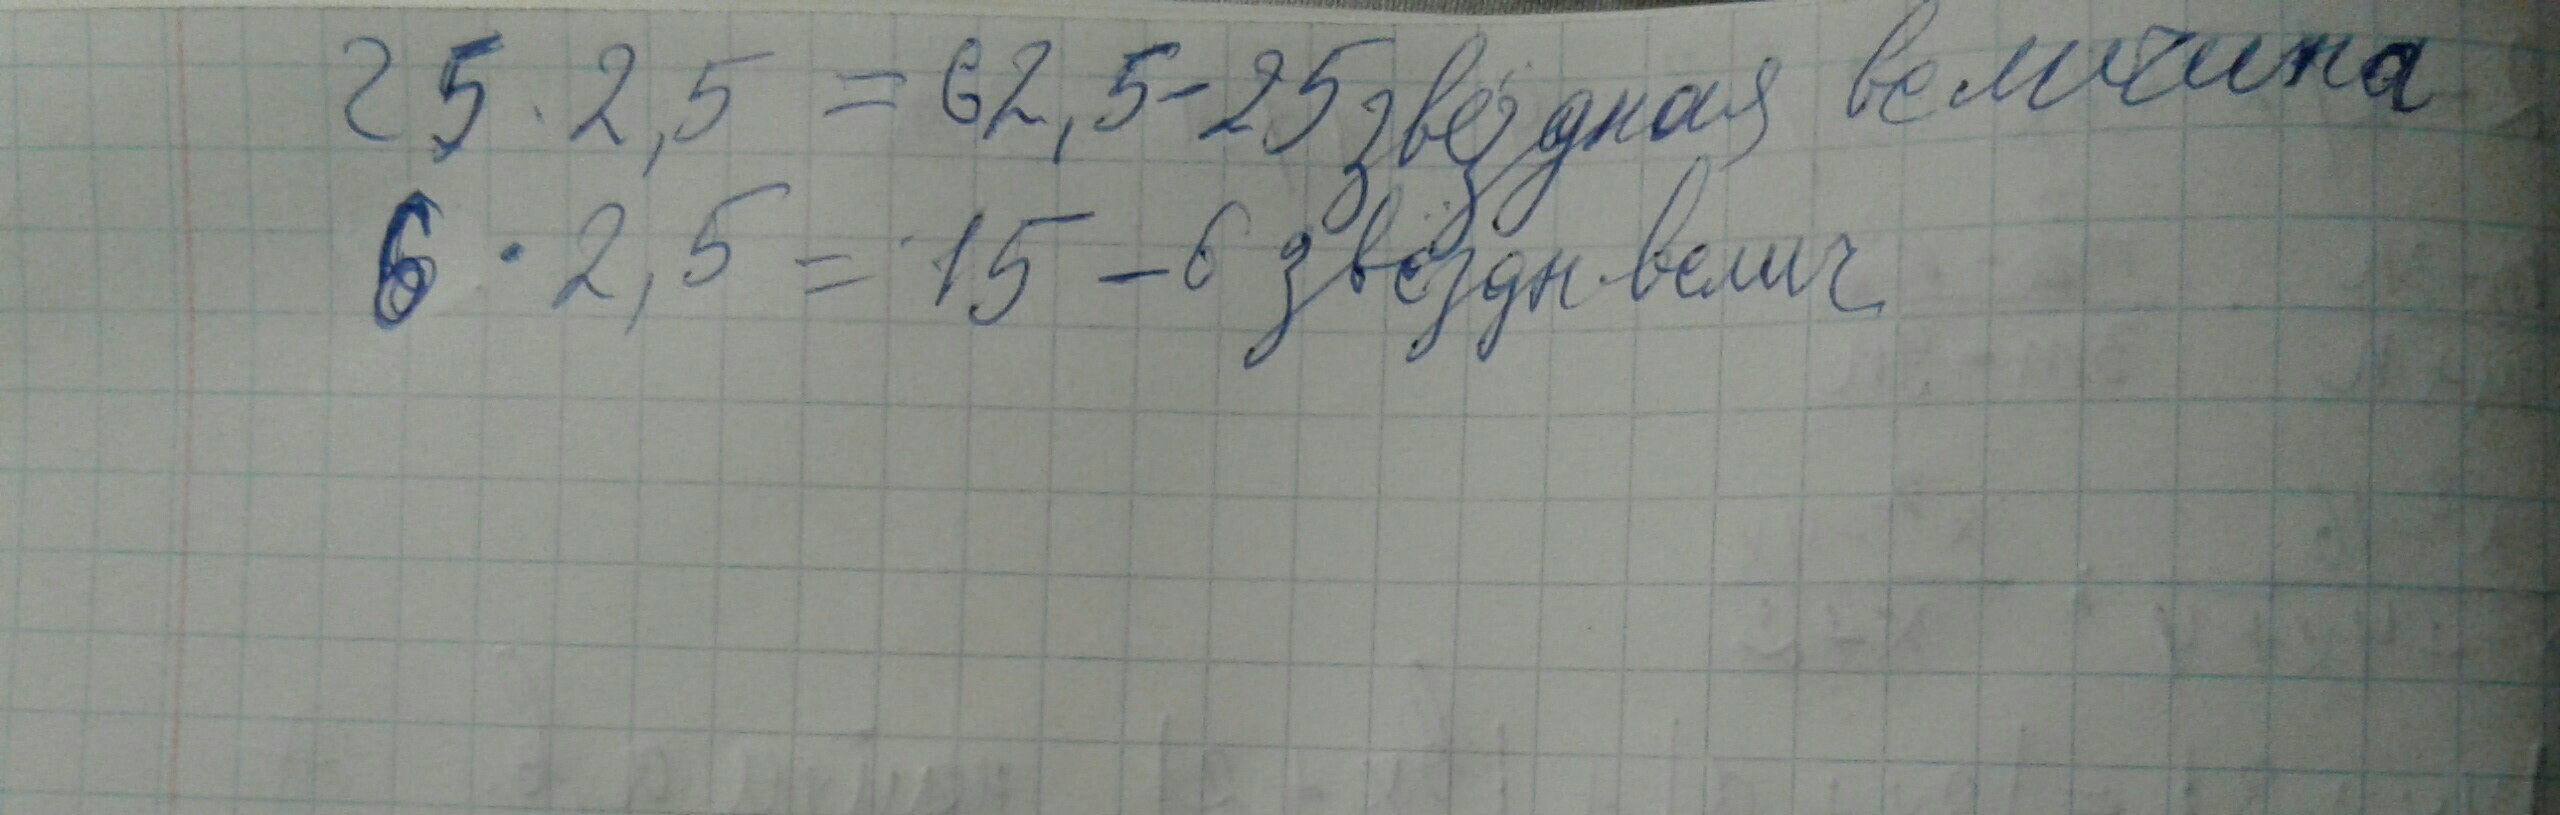 25 · 2,5 = 62,5 - 25 звёздная величина
6 · 2,5 = 15 - 6 звёздн велич